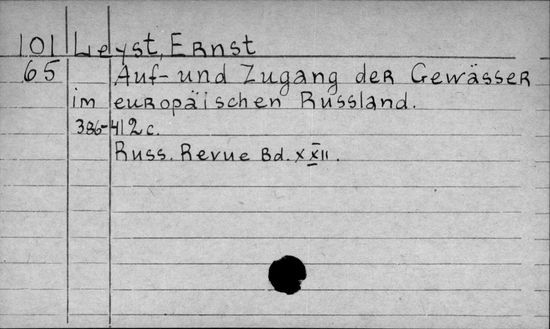 101 Leyst, Ernst
65 Auf- und Zugang der Gewässer
im europäischen Russland.
386-412 c.
Russ. Revue Bd. XXII.